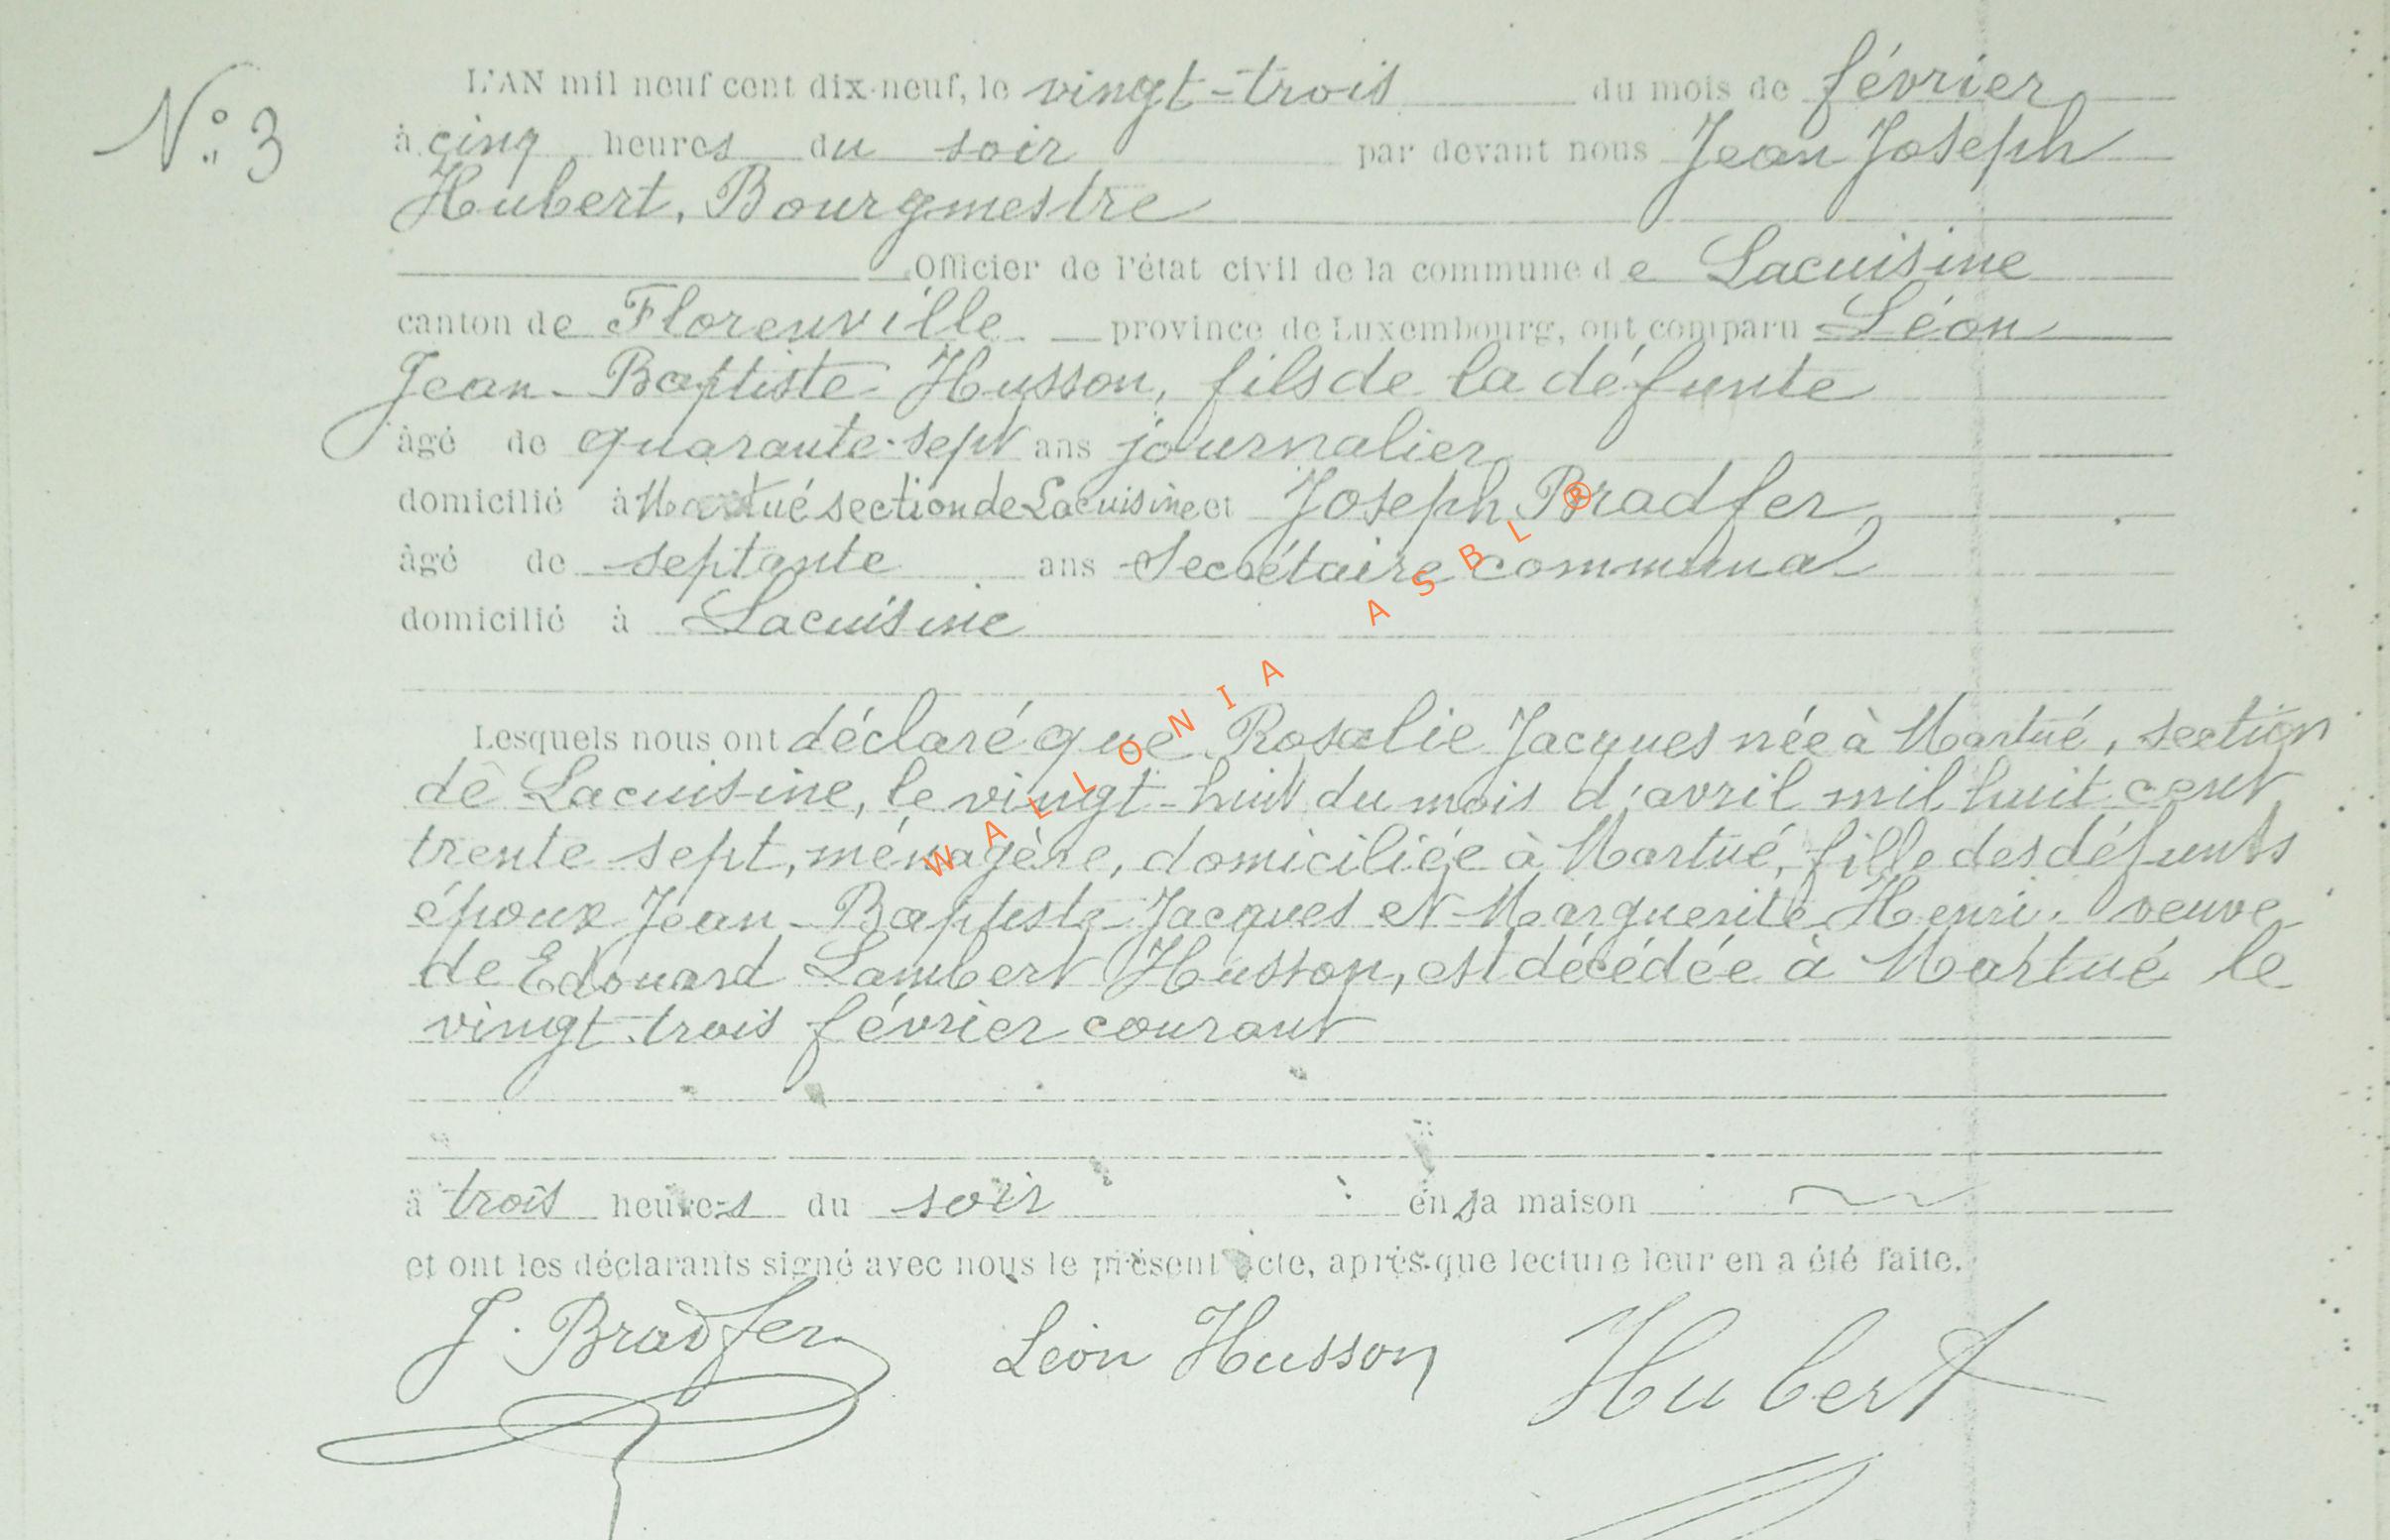 N° 3
L'AN mil neuf cent dix-neuf, le vingt-trois du mois de février
à cinq heures du soir par devant nous Jean Joseph
Hubert, Bourgmestre
Officier de l'état civil de la commune de Lacuisine
canton de Florenville province de Luxembourg, ont comparu Léon
Jean-Baptiste Husson, fils de la défunte
âgé de quarante-sept ans journalier
domicilié à Martué section de Lacuisine et Joseph Bradfer
âgé de septante ans Secrétaire communal
domicilié à Lacuisine
Lesquels nous ont déclaré que Rosalie Jacques née à Martué, section
de Lacuisine, le vingt-huit du mois d'avril mil huit cent
trente sept, ménagère, domiciliée à Martué, fille des défunts
époux Jean-Baptiste Jacques et Marguerite Henri, veuve
de Edouard Lambert Husson, est décédée à Martué le
vingt-trois février courant
à trois heures du soir en sa maison
et ont les déclarants signé avec nous le présent acte, après que lecture leur en a été faite.
J. Bradfer Léon Husson Hubert
WALLONIA ASBL ®